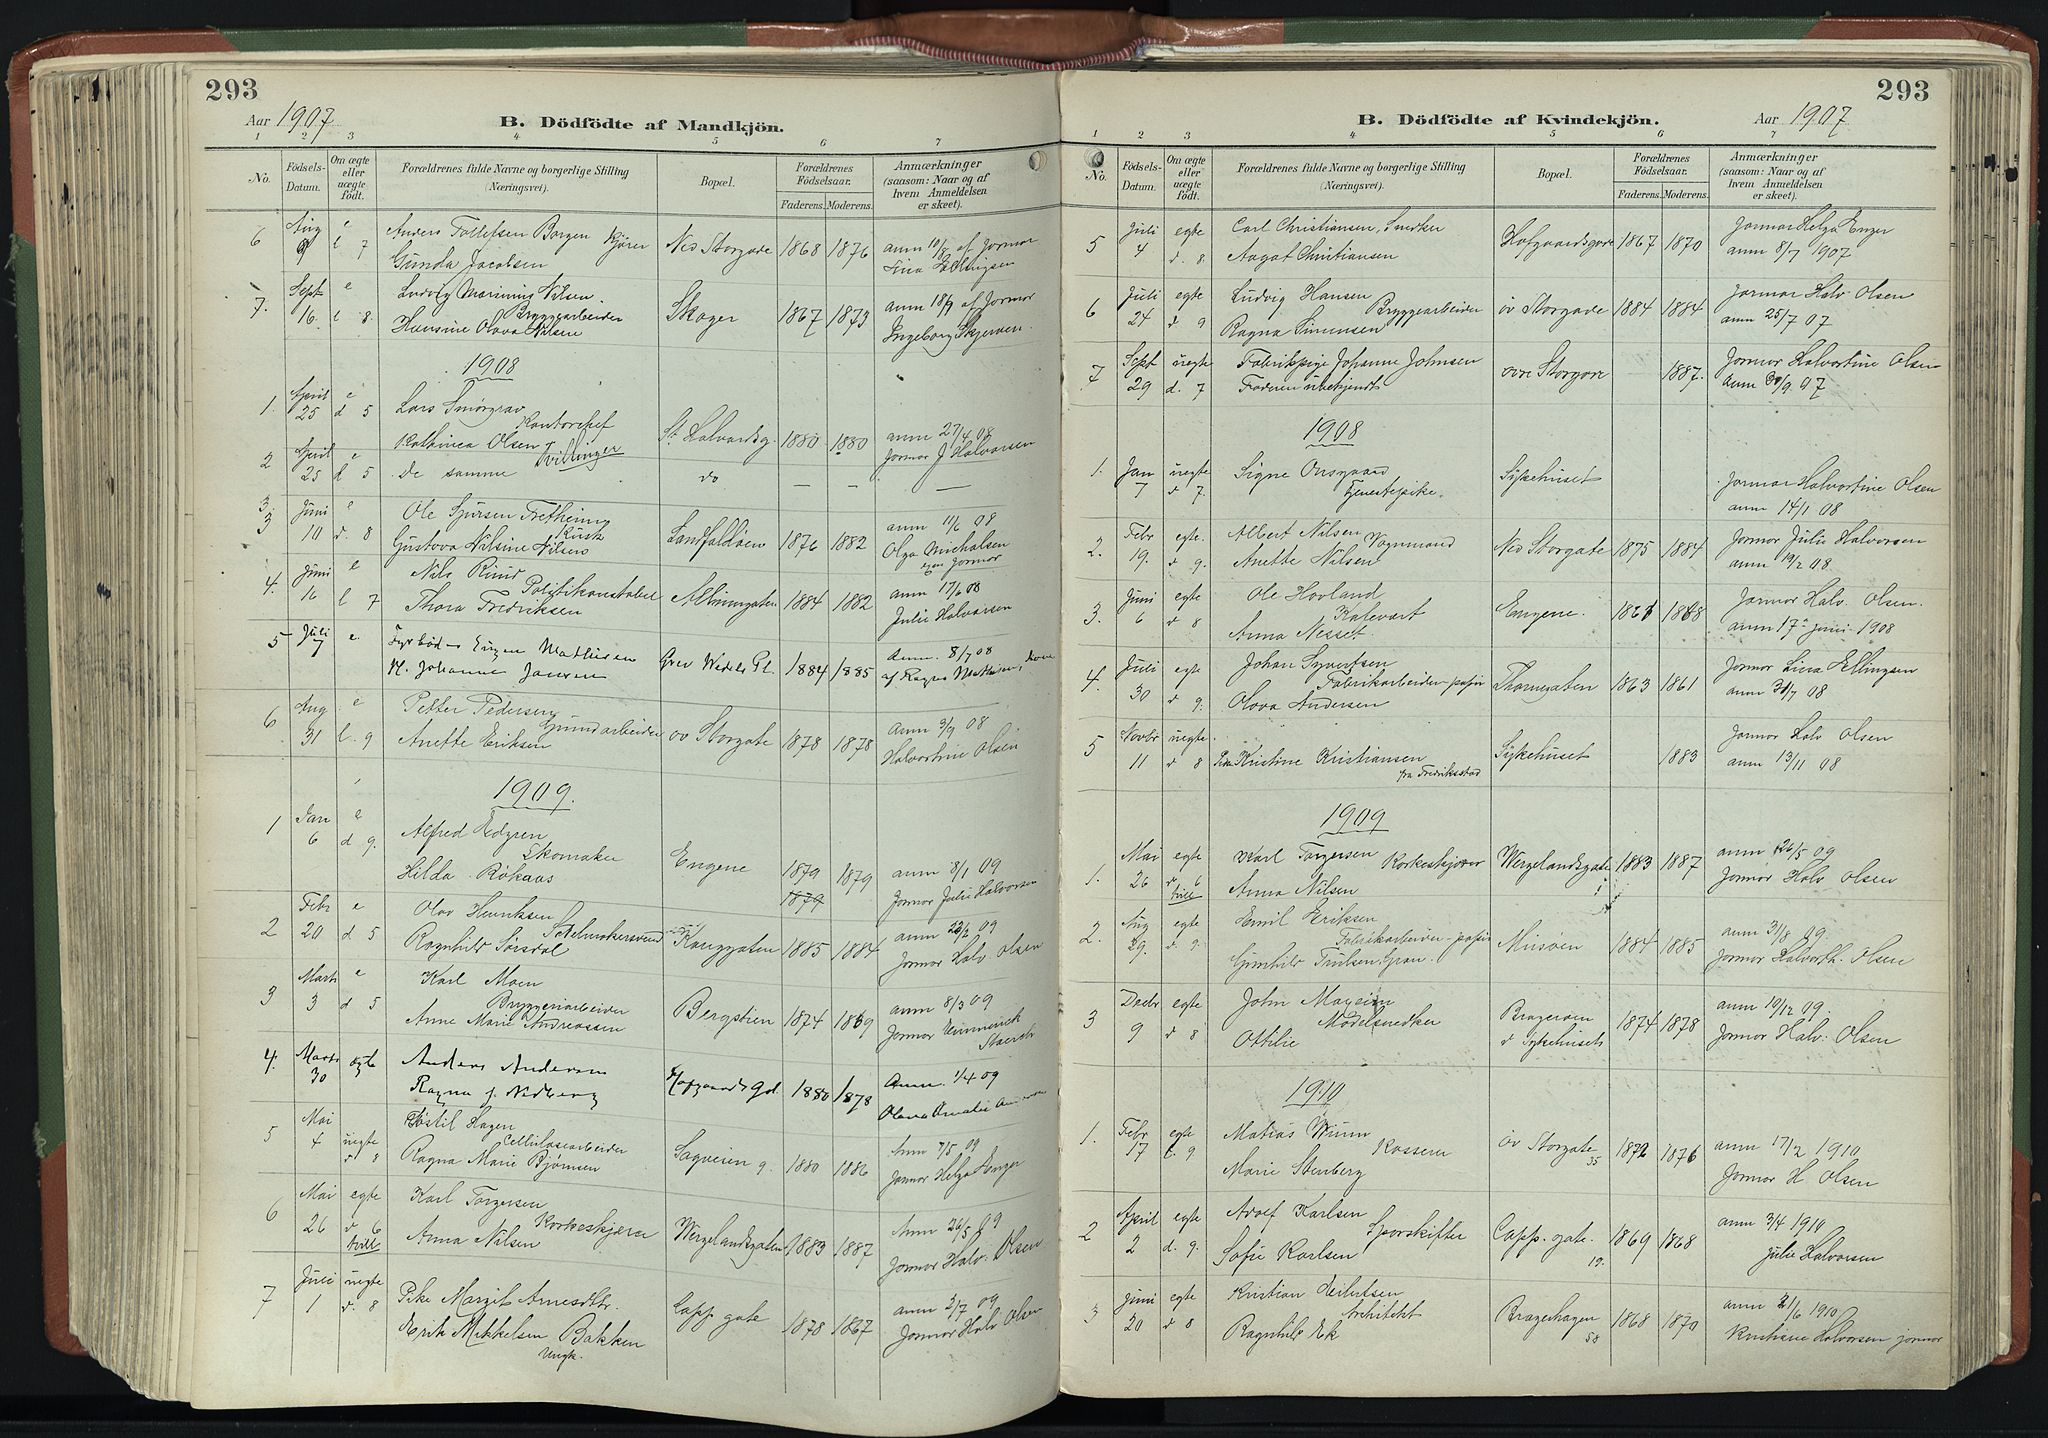 293
Aar 1907
B. Dödfödte af Mandkjön.
1 2 3 4 5 6 7
No. Födsels-Datum. Om ægte eller uægte födt. Forældrenes fulde Navne og borgerlige Stilling (Næringsvei). Bopæl. Forældrenes Födselsaar. Faderens. Moderens. Anmærkninger (saasom: Naar og af hvem Anmeldelsen er skeet).
6 Aug e Anders Tollefsen Borgen Kjører Ned Storgade 1868 1876 anm 10/8 af Jormor
l 7 Gunda Jacobsen Lina Ellingsen
7. Sept e Ludvig Marinius Nilsen. Skoger 1867 1873 anm 18/9 af Jormor
16. l 8. Bryggearbeider
Hansine Olava Nilsen Ingeborg
1908
1. April e Lars Smørgrav
25 d 5 Kontorchef
Kathinca Olsen St Halvardsg. 1880 1880 anm 27/4 08
Tvillinger Jormor J Halvorsen
2 April e De samme do — — —
25 d 5
3. Juni e Ole Sjursen Fretheim
3 10 d. 8 Kusk Landfaldøen 1876 1882 anm 11/6 08
Gustava Nilsine Nilsens Olga Michalsen
egen Jormor
4. Juni e Nils Ruud
16 l 7 Politikonstabel 1884 1882 anm 17/6 08
Thora Fredriksen Julie Halvorsen
5 Juli e. Fyrbød- Mathisen
7 H. Johanne Jansen Grev Wedels Pl. 1884 1885 Anm. 8/7 08
af Ragna Mathisen,
6 Aug e Petter Pedersen
31 l. 9 Grundarbeider øv Storgate 1878 1878 anm 3/9 08
Anette Eriksen Halvortine Olsen
1909.
1 Jan e Alfred Edgren
6 d 9. Skomaker
Hilda Røkaas Engene 1879 1879 anm 8/1 09
1879 Jormor Julie Halvorsen
2 Febr e Olav Henriksen
20 d 5 Sadelmakersvend Konggaten 1885 1884 anm 22/2 09
Ragnhild Sørsdal Jormor Halv Olsen
3 Marts e Karl Moen
3 d 5 Bryggeriarbeider Bergstien 1874 1869 anm 8/3 09
Anne Marie Andreassen Jormor
4. Marts ægte Anders Andersen
30 Hofgaards gd. 1880 1878 Anm. 1/4 09
Ragna f. Nidberg Olava Amalie
5 Mai Kostil Hagen
4 uegte Cellulosearbeider Sagveien 9. 1880 1886 Anm 7/5 09
d 8 Ragna Marie Bjønnen Jormor Helga Enger
6 Mai egte Karl Torgersen
26 d 6 Korkeskjærer Wergelandsgaten 1883 1887 Anm 26/5 09
tvill Anna Nilsen Jormor Halv. Olsen
7 Juli uegte Pike Margit Arnesdtr.
1 d. 8 Capp. gate 1878 1867 anm 2/7 09
Erik Mikkelsen Bakken Jormor Halv Olsen
Ungk.
293
B. Dödfödte af Kvindekjön.
Aar 1907
1 2 3 4 5 6 7
No. Födsels-Datum. Om ægte eller uægte födt. Forældrenes fulde Navne og borgerlige Stilling (Næringsvei). Bopæl. Forældrenes Födselsaar. Faderens. Moderens. Anmærkninger (saasom: Naar og af hvem Anmeldelsen er skeet).
5 Juli egte Carl Christiansen, Snedker Hofgaardsgade 1867 1870 Jormor Helga Enger
4 d. 8 Aagot Christiansen anm 8/7 1907
6 Juli egte Ludvig Hansen
24 d 9 Bryggearbeider øv Storgade 1884 1884 Jormor Halv. Olsen
Ragna Simensen anm 25/7 07
7 Sept uegte Fabrikpige Johanne Johnsen øvre Storgade 1887. Jormor Halvortine Olsen
29 d. 7 Faderen ubekjendt anm 30/9 07
1908
1. Jan uegte Signe Onsgaard Sykehuset Jormor Halvortine Olsen
7 d 7. Tjenestepike. anm 14/1 08
2. Febr egte. Albert Nilsen
19. d 9. Vognmand Ned Storgate 1875 1884 Jormor Julie Halvorsen
Anette Nilsen anm 19/2 08.
3. Juni egte Ole Hovland
6 d 8 Engene. 1868 Jormor Halv. Olsen.
Anna Nesset. anm 17 juni 1908
4. Juli egte Johan Syvertsen
30 d 9. Fabrikarbeider-papir Thornegaten 1863 1861 Jormor Lina Ellingsen
Olava Andersen anm 31/7 08
5 Novbr uegte. Kristine Kristiansen Sykehuset 1883 Jormor Halv Olsen
11 d 8 fra Fredriksstad anm 13/11 08
1909
1. Mai egte Karl Torgersen Korkeskjærer Wergelandsgate 1883 1887 anm 26/5 09
26 d 6 Anna Nilsen Jormor Halv Olsen
tvill
2. Aug egte Emil Eriksen
29. d. 9. Fabrikarbeider-papir Miisøen 1884 1885 anm 31/8 09.
Gunhild Trulsen, Gran. Jormor Halvorth. Olsen
3 Decbr egte John
9 d 8 Modelsnedker Bragerøen 1874 1878 anm 10/12 09.
Ottilie d Sykehusets Jormor Halv. Olsen
1910
1. Febr egte Matias Wium
17 l. 9 Kasserer øv Storgate 35 1872 1876 anm 17/2 1910
Marie Stenberg Jormor H. Olsen
2 April egte Adolf Karlsen
2 d. 9. Sporskifter Capp. gate. 19. 1869 1868 anm 3/4 1910
Sofie Karlsen Julie Halvorsen
3 Juni egte Kristian Eilertsen
20 d 8 Architekt Bragerhagen 58 1868 1870 anm 21/6 1910
Ragnhild Ek Kristiane Halvorsen jormor